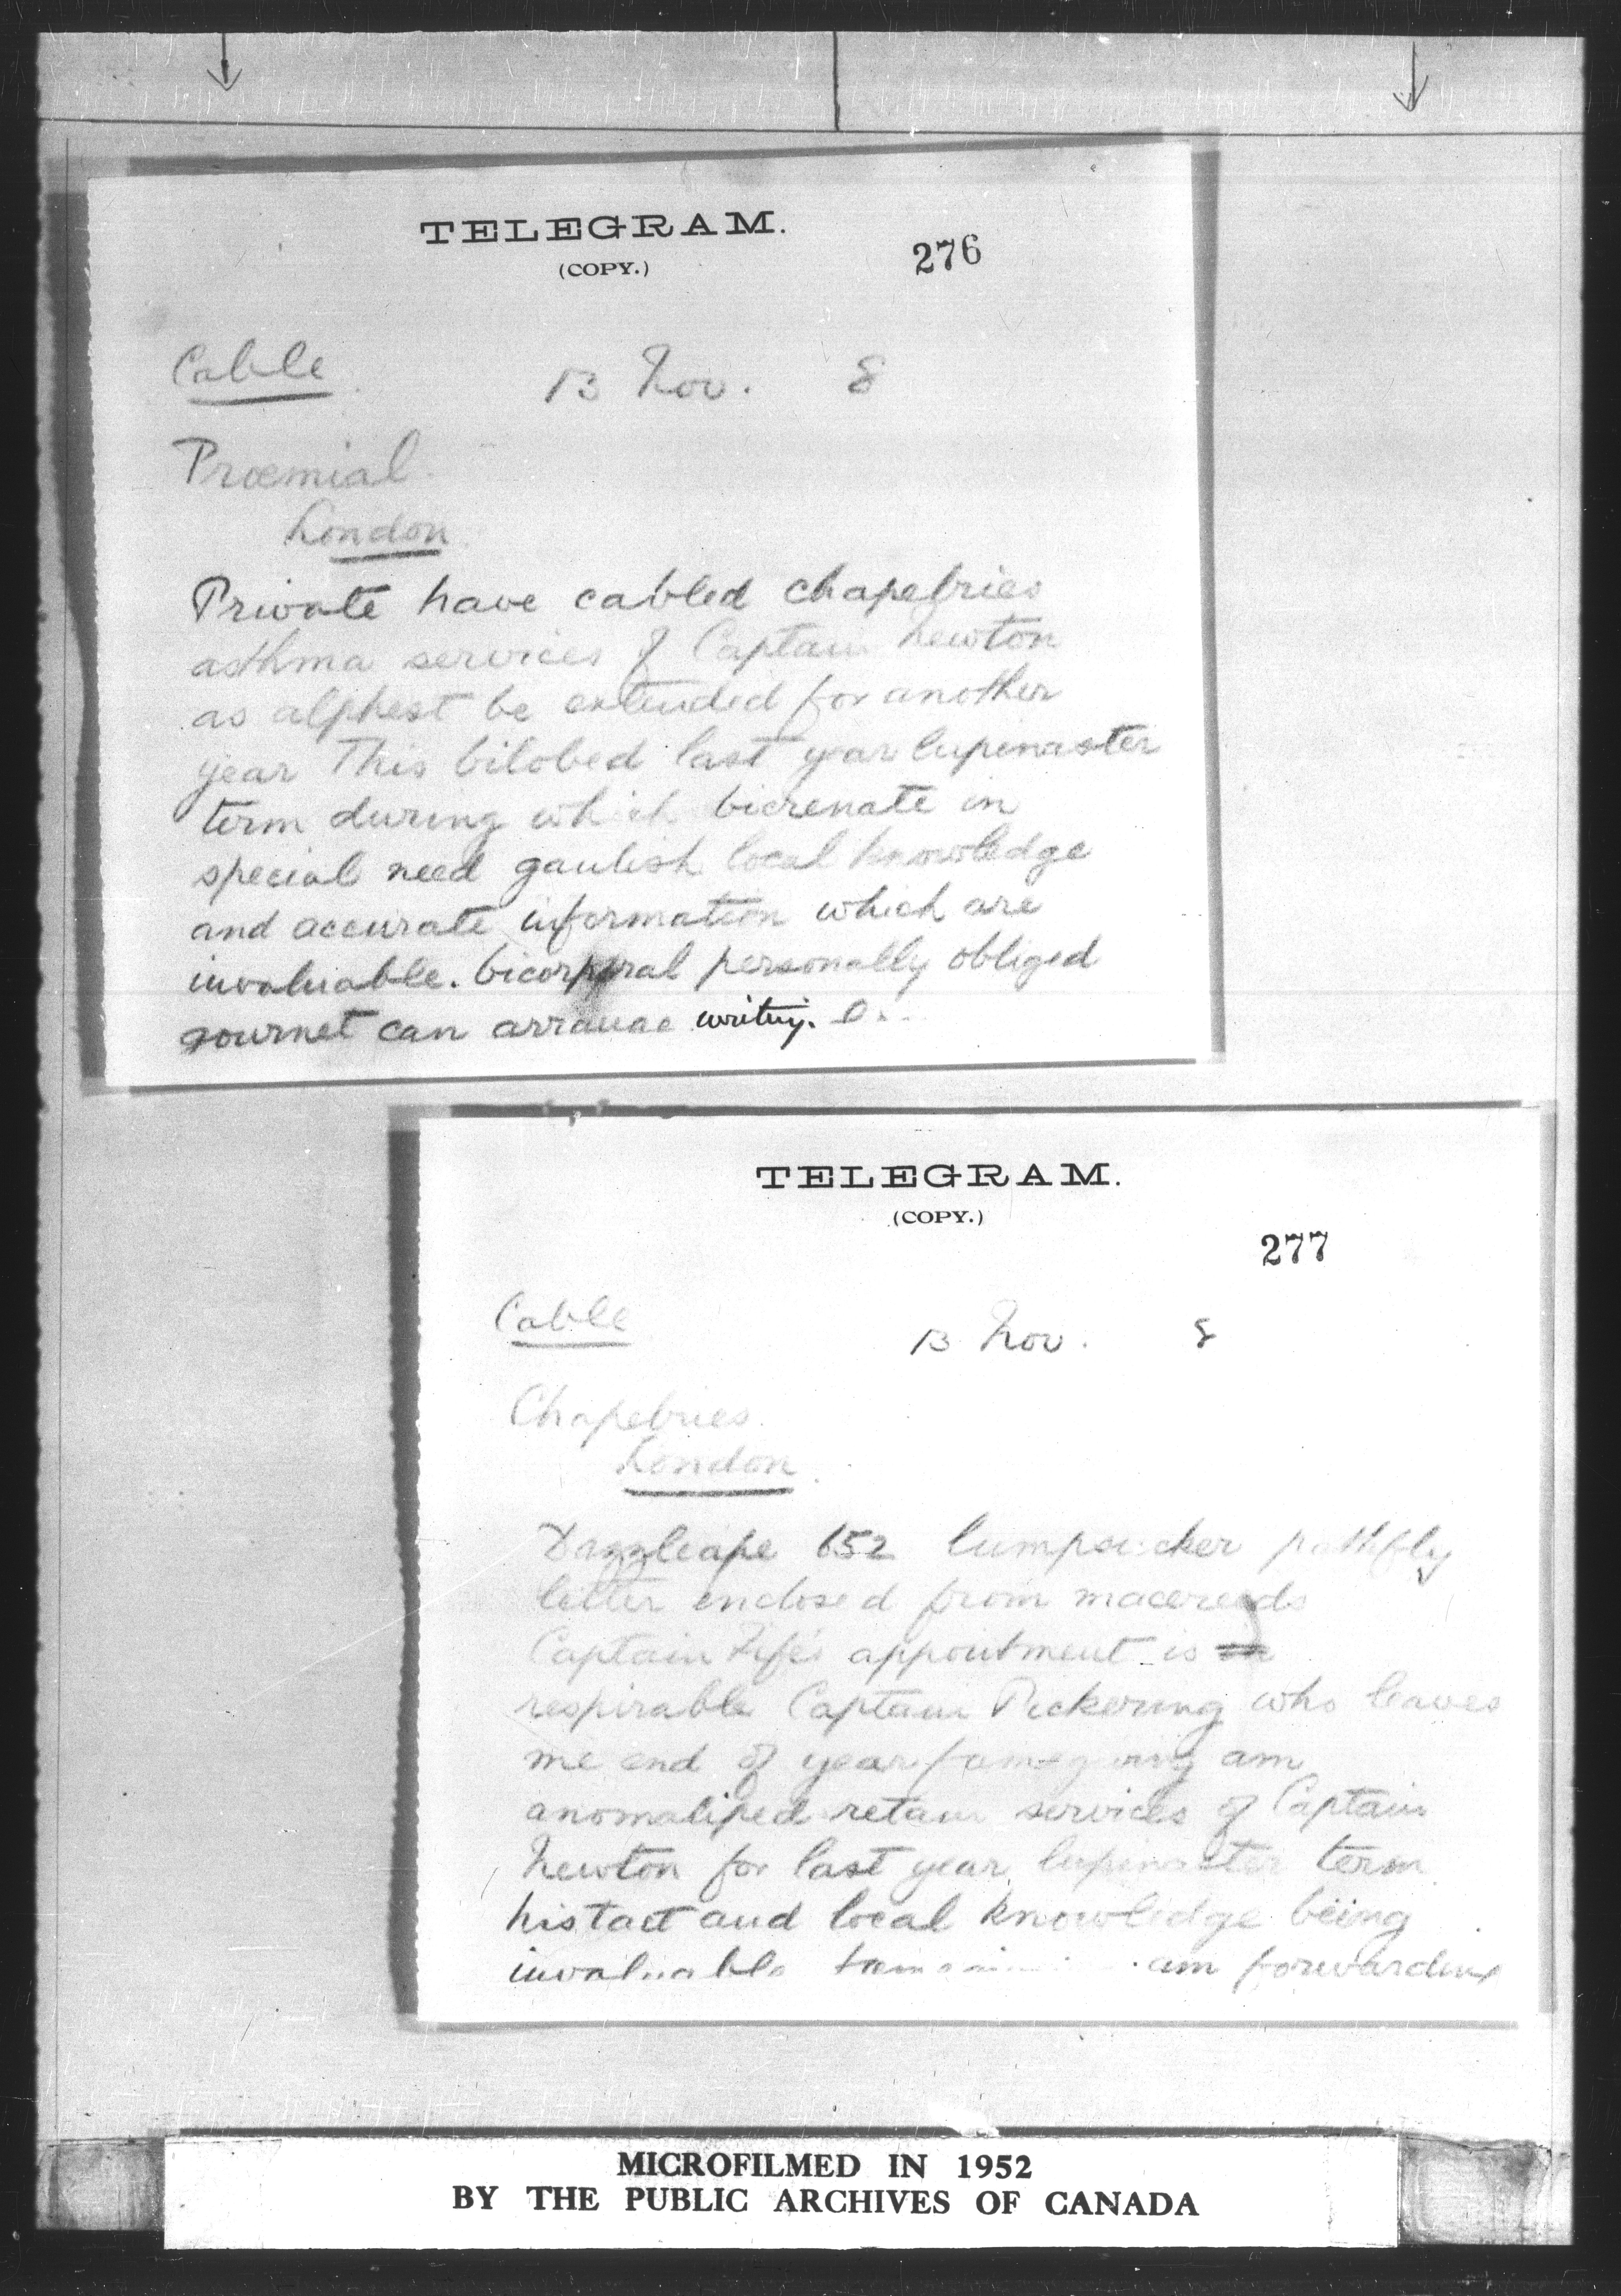 TELEGRAM.
(COPY.)
276
Cable 13 Nov. 8
Proemial
London
Private have cabled chapebries
asthma services of Captain Newton
as alphest be extended for another
year This bilobed last year lupinaster
term during which bicrenate in
special need gaulish local knowledge
and accurate information which are
invaluable. bicorporal personally obliged
gournet can arrange writing.
TELEGRAM.
(COPY.)
277
Cable 13 Nov. 8
Chapebries
London
Dazzleape 652 lumpsucker pathfly
letter enclosed from macereeds
Captain Fife's appointment is
respirable Captain Pickering who leaves
me end of year am
anomaliped retain services of Captain
Newton for last year lupinaster term
his tact and local knowledge being
invaluable am forwarding
MICROFILMED IN 1952
BY THE PUBLIC ARCHIVES OF CANADA